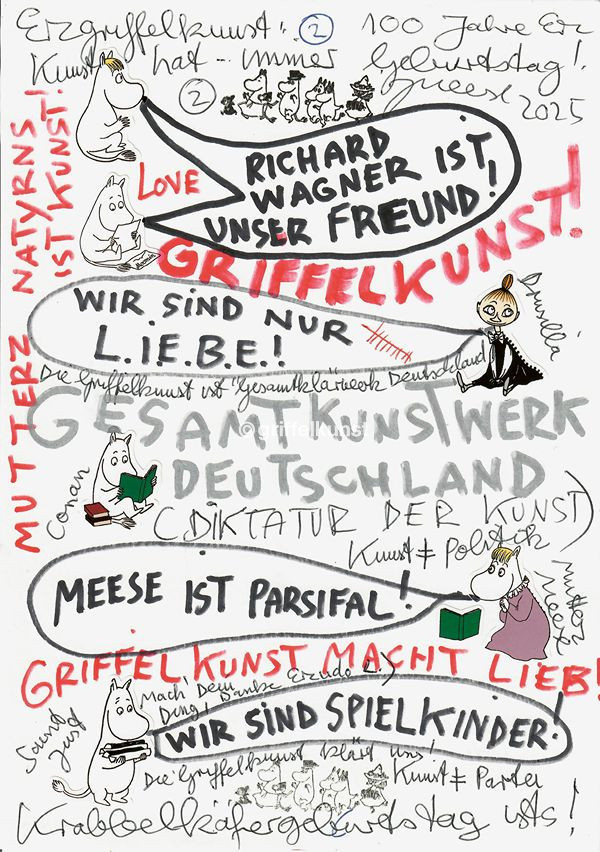 Erzgriffelkunst: 2 100 Jahre Erz
Kunst hat immer Geburtstag!
2 Meese 2025
NATYRNS
IST KUNST!
RICHARD
WAGNER IST
UNSER FREUND!
LOVE
GRIFFELKUNST!
WIR SIND NUR
L.IE.B.E.!
Drusilla
Die Griffelkunst ist "Gesamtklärwerk Deutschland
GESAMTKUNSTWERK
© griffelkunst
DEUTSCHLAND
MUTTERZ
Conan
(DIKTATUR DER KUNST)
Kunst ≠ Politik
MEESE IST PARSIFAL!
Mutterz
Meese
GRIFFELKUNST MACHT LIEB!
Mach' Dein
Ding! Danke
WIR SIND SPIELKINDER!
Die Griffelkunst klärt uns!
Kunst ≠ Partei
Krabbelkäfergeburtstag ists!